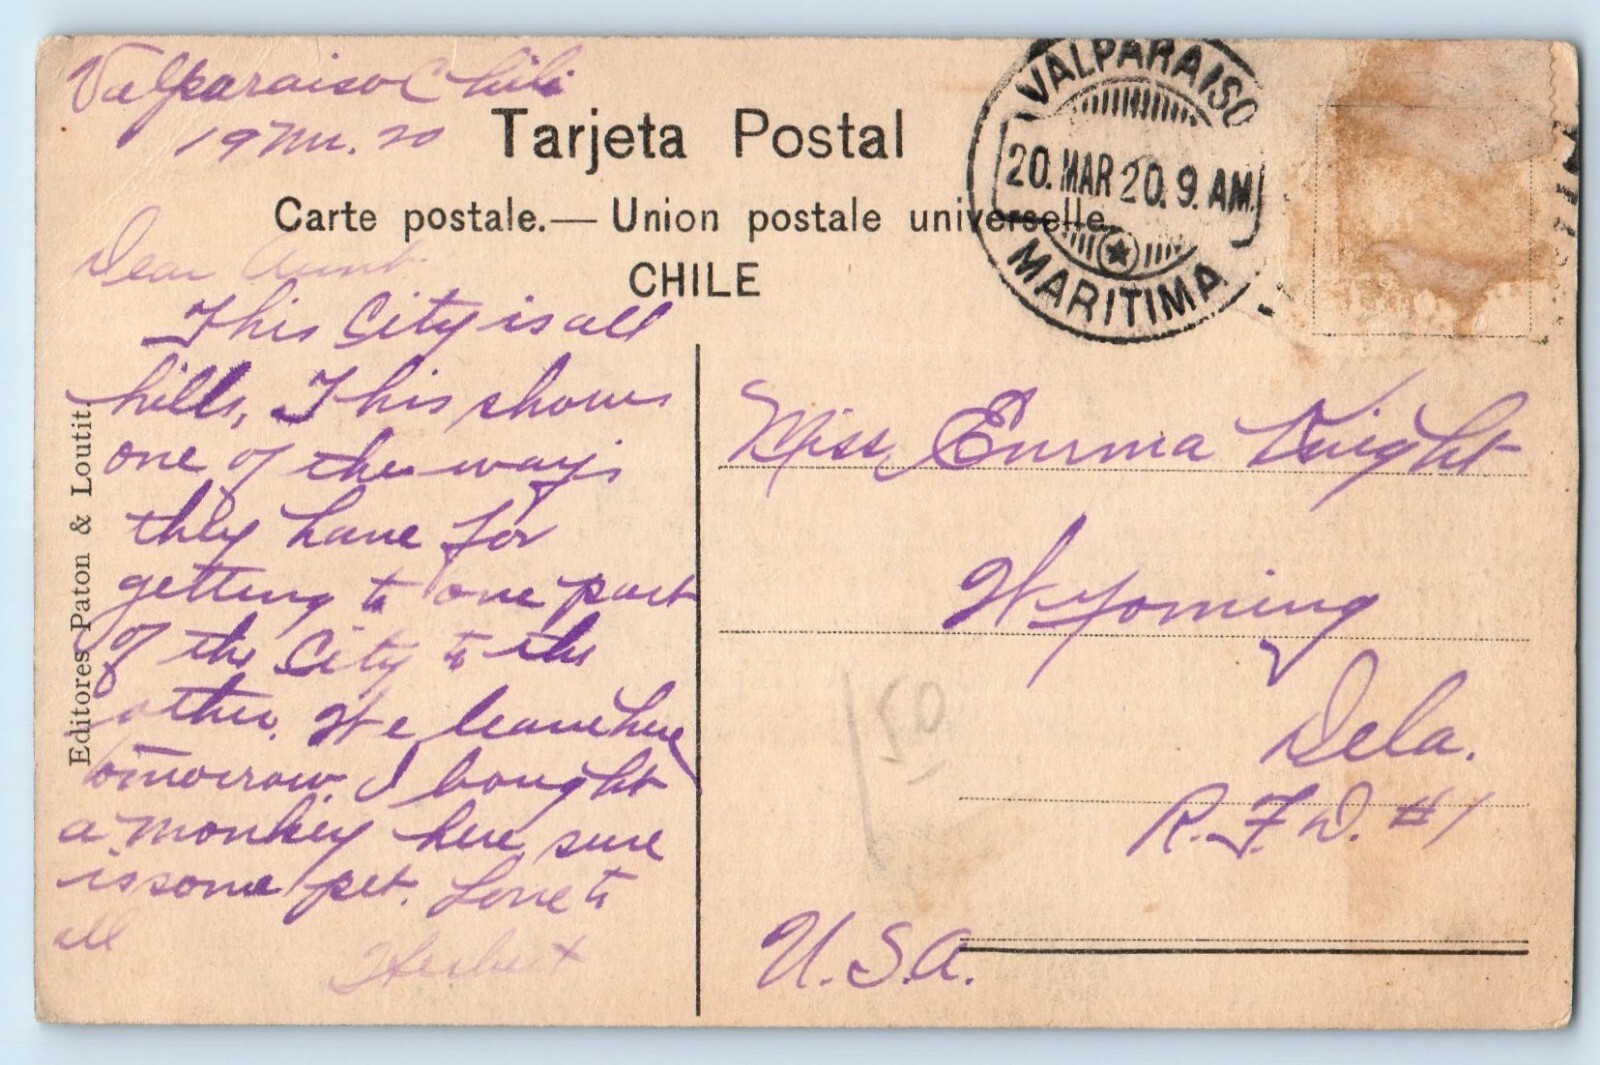 Valparaiso Chili
19 Mr. 20
Tarjeta Postal
Carte postale.— Union postale universelle.
CHILE
VALPARAISO
20. MAR 20. 9. AM.
MARITIMA
Dear Aunt
This City is all
hills, This shows
one of the ways
they have for
getting to one part
of the City to the
other. We leave here
tomorrow. I bought
a monkey here sure
is some pet. Love to
all
Herbert
Editores Paton & Loutit.
Miss Emma Knight
Wyoming
Dela.
R.F.D. #1
U.S.A.
50